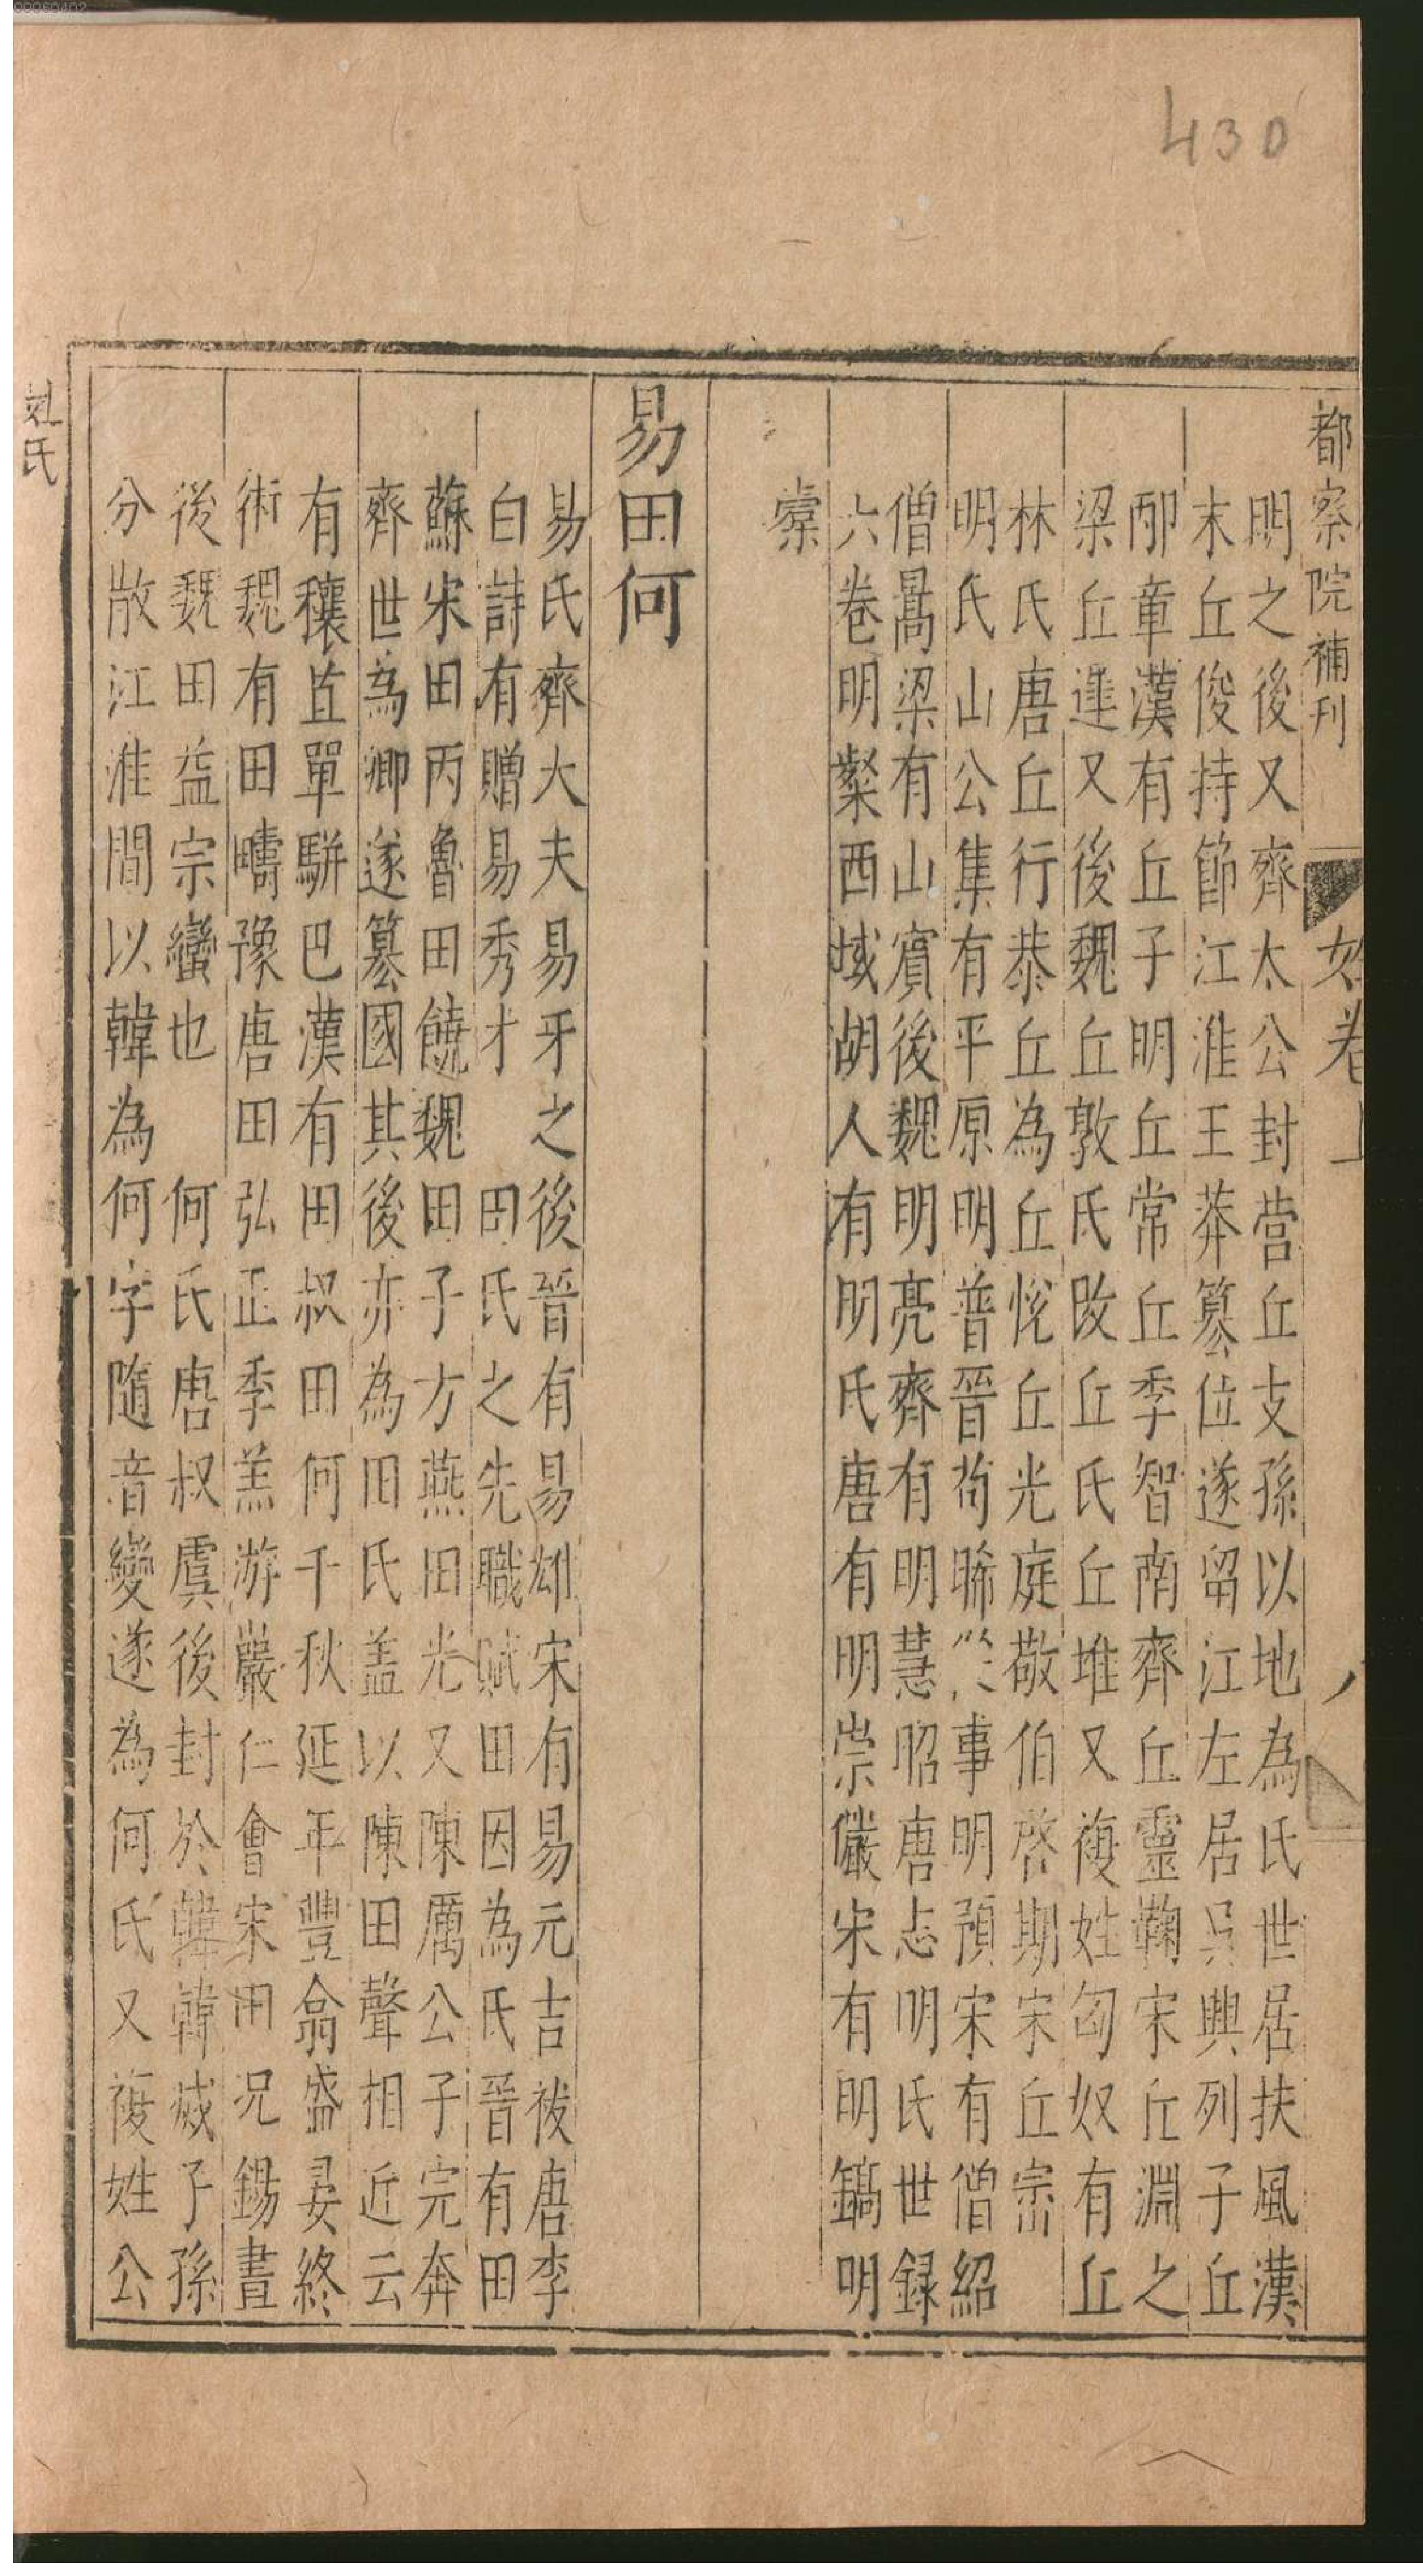 00060402
430
都察院補刊 姓卷上
明之後又齊太公封營丘支孫以地為氏世居扶風漢
末丘俊持節江淮王莽篡位遂留江左居吳興列子丘
邴章漢有丘子明丘常丘季智南齊丘靈鞠宋丘淵之
梁丘遲又後魏丘敦氏改丘氏丘堆又複姓匈奴有丘
林氏唐丘行恭丘為丘悅丘光庭敬伯啓期宋丘崈
明氏山公集有平原明普晉荀晞從事明預宋有僧紹
僧暠梁有山賓後魏明亮齊有明慧昭唐志明氏世録
六卷明粲西域胡人有明氏唐有明崇儼宋有明鎬明
橐
易田何
易氏齊大夫易牙之後晉有易雄宋有易元吉祓唐李
白詩有贈易秀才 田氏之先職賦田因為氏晉有田
蘇宋田丙魯田饒魏田子方燕田光又陳厲公子完奔
齊世為卿遂篡國其後亦為田氏盖以陳田聲相近云
有穰苴單駢巴漢有田叔田何千秋延年豐翕盛晏終
術魏有田疇豫唐田弘正季羔游巖仁會宋田況錫晝
後魏田益宗蠻也 何氏唐叔虞後封於韓韓滅子孫
分散江淮間以韓為何字隨音變遂為何氏又複姓公
姓氏